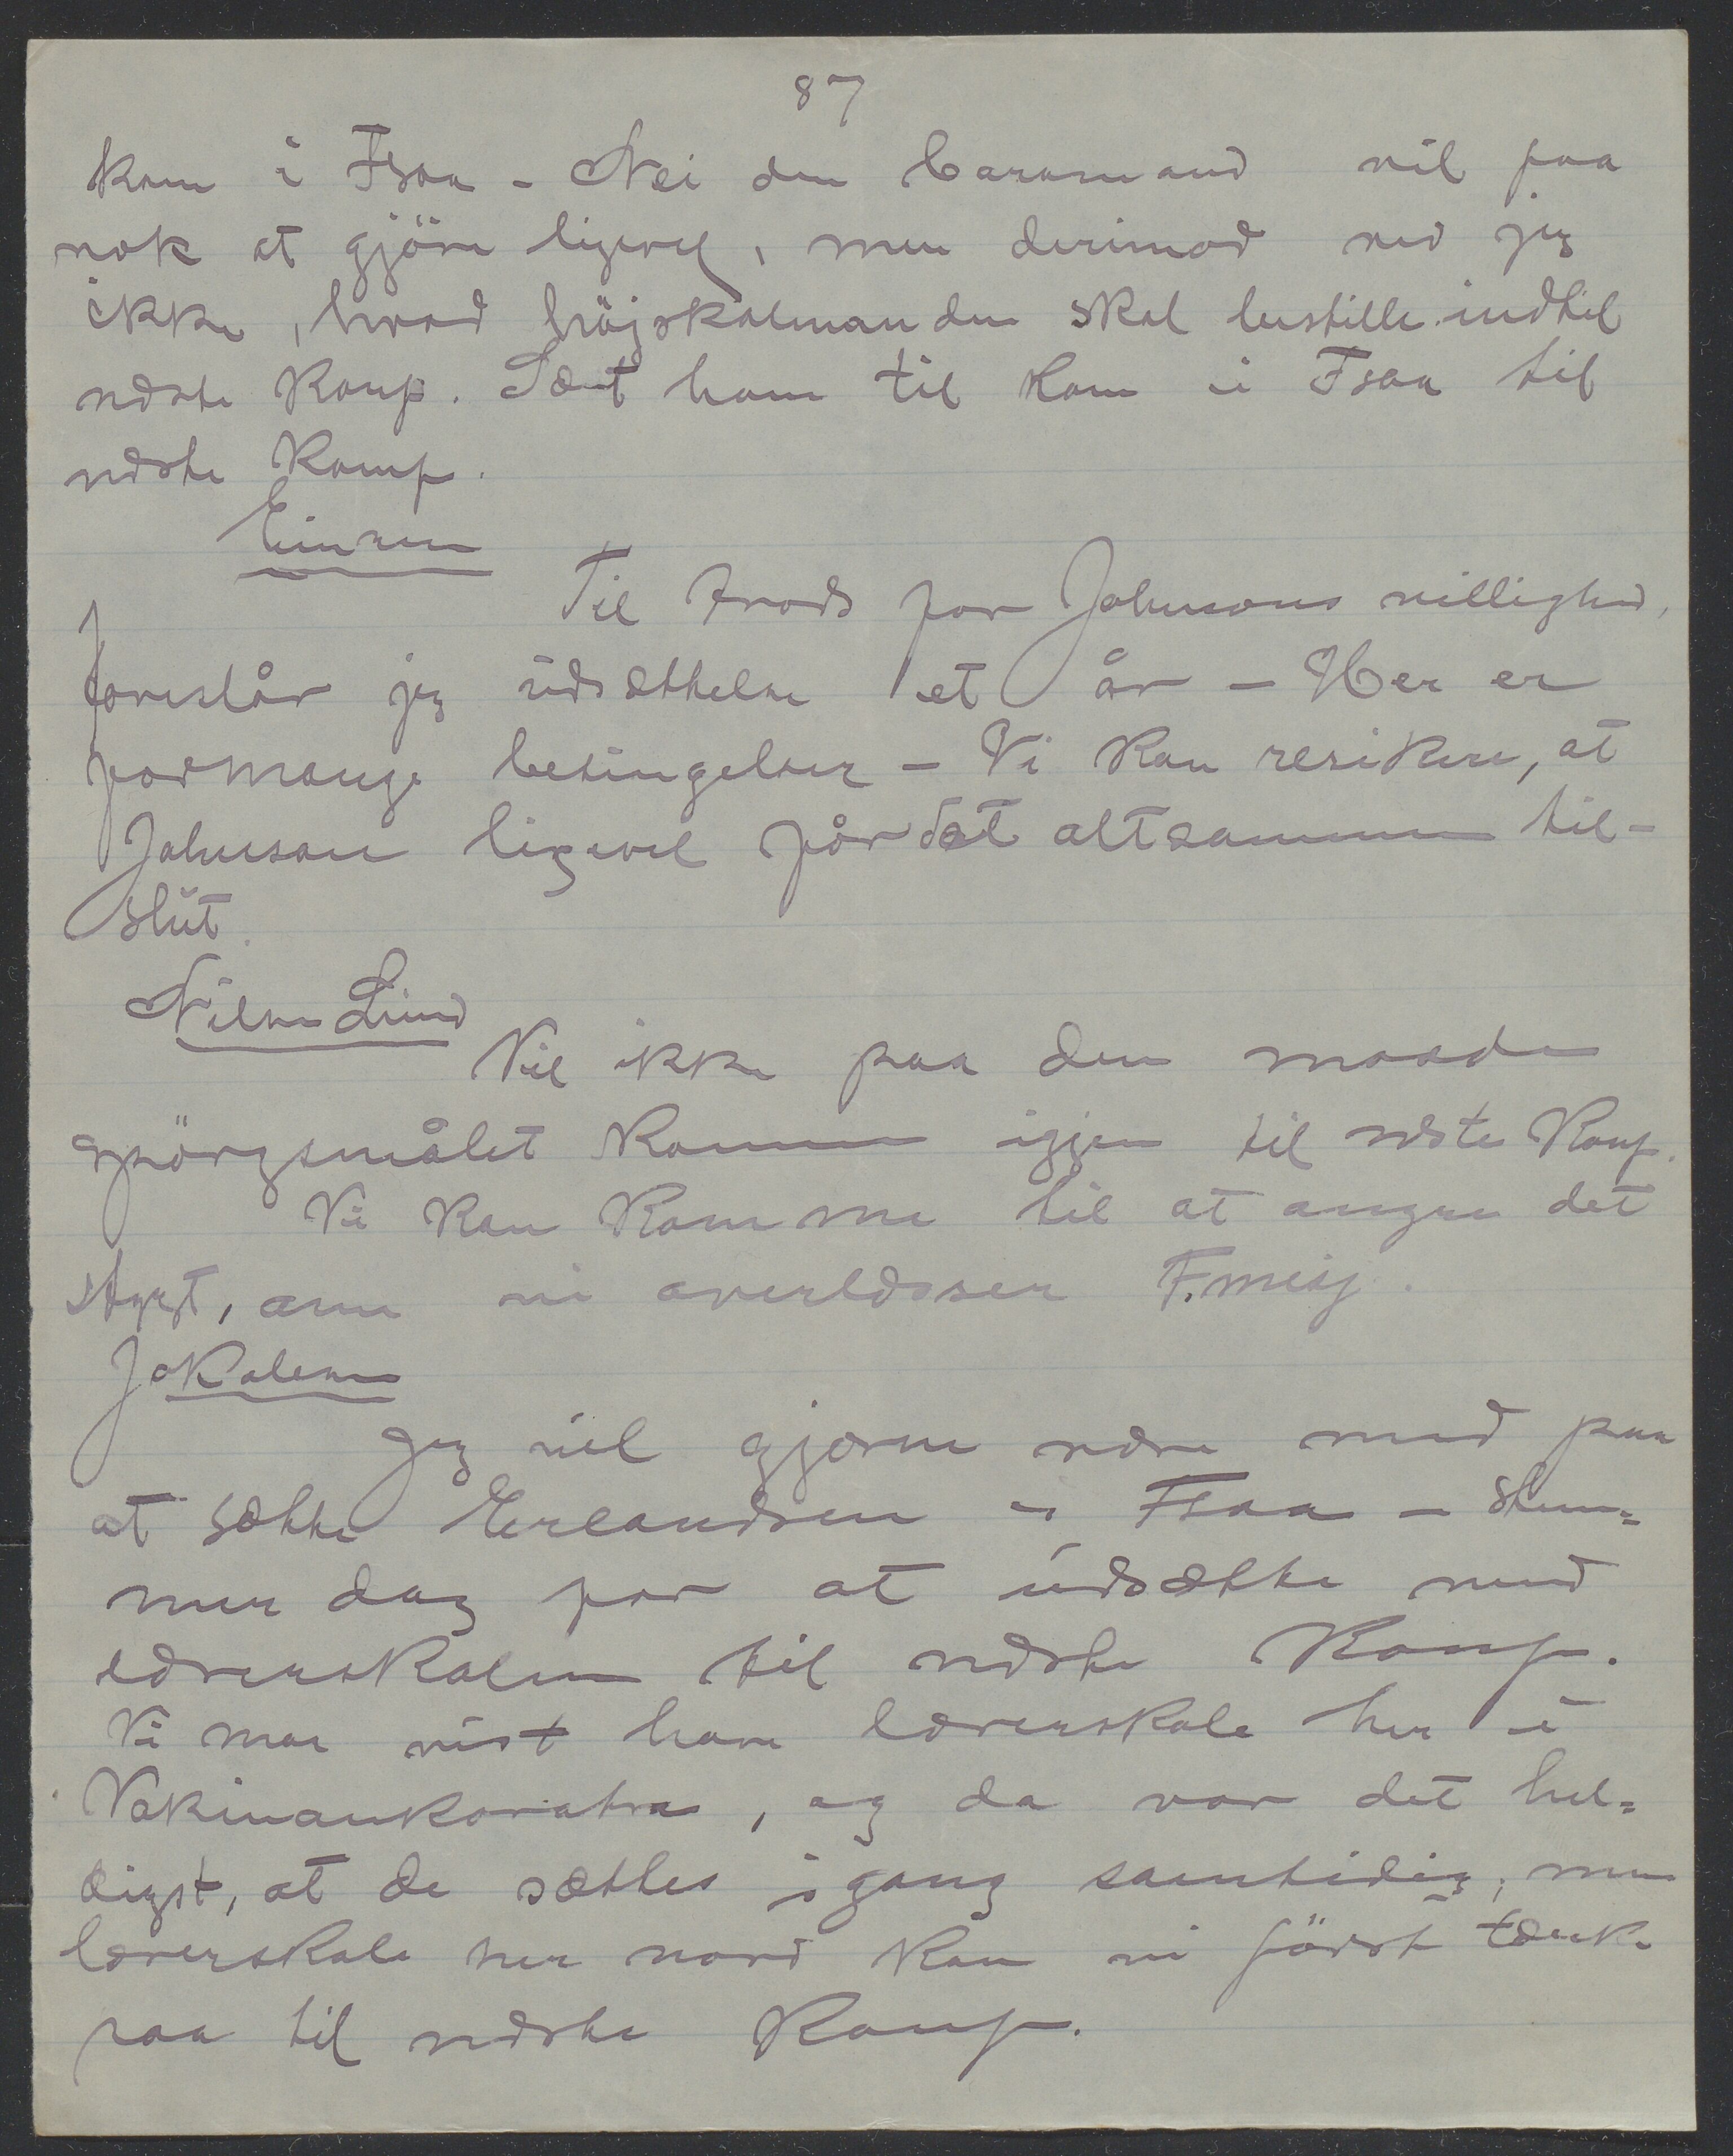 87
kom i Fsoa - Nei den baramand vil faa
nok at gjöre ligevel, men derimod ved jeg
ikke, hvad höjskolemanden skal bestille indtil
næste Konf. Sæt ham til kom i Fsoa til
næste Konf.
Einrem
Til trods for Johnsons villighed,
foreslår jeg udsættelse et år - Her er
formange betingelser - Vi kan resikere, at
Johnson ligevel får det altsammen til-
slut.
Nilsen Lund
Vil ikke paa den maade
spörgsmålet komme igjen til næste Konf.
Vi kan komme til at angre det
stygt, om vi overlæsser F. misj.
Jokolsen
Jeg vil gjerne være med paa
at sætte Erlandsen i Fsoa - stem=
mer dog for at udsætte med
lærerskolen til næste Konf.
Vi maa vist have lærerskole her i
Vakinankaratra, og da var det hel=
digst, at de sættes igang samtidig, men
lærerskole her nord kan vi först tænke
paa til næste Konf.